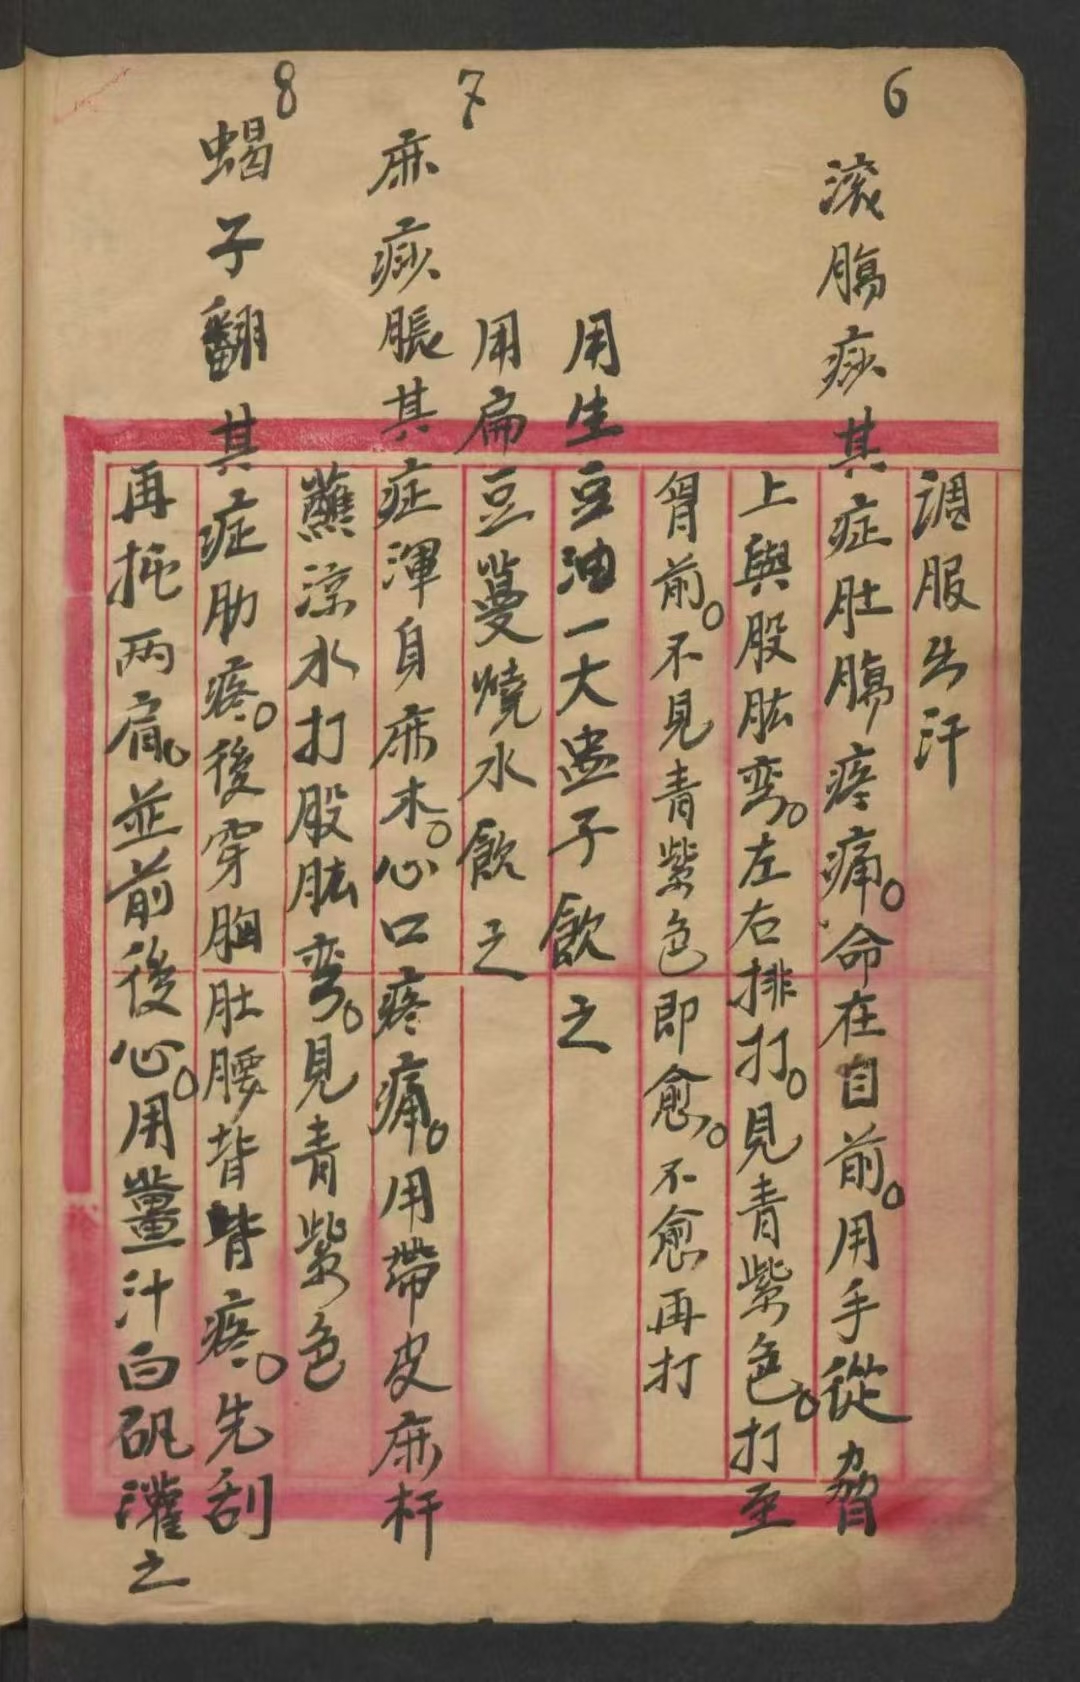 調服出汗
6
滾腸痧其症肚腸疼痛。命在目前。用手從脅
上與股肱弯。左右排打。見青紫色。打至
胷前。不見青紫色即愈。不愈再打
用生豆油一大盅子飲之
7
用扁豆蔓燒水飲之
麻痧脹其症渾身麻木。心口疼痛。用帶皮麻杆
蘸涼水打股肱弯。見青紫色
8
蝎子翻其症肋疼。後穿胸肚腰背皆疼。先刮
再扽两肩並前後心。用薑汁白矾灌之